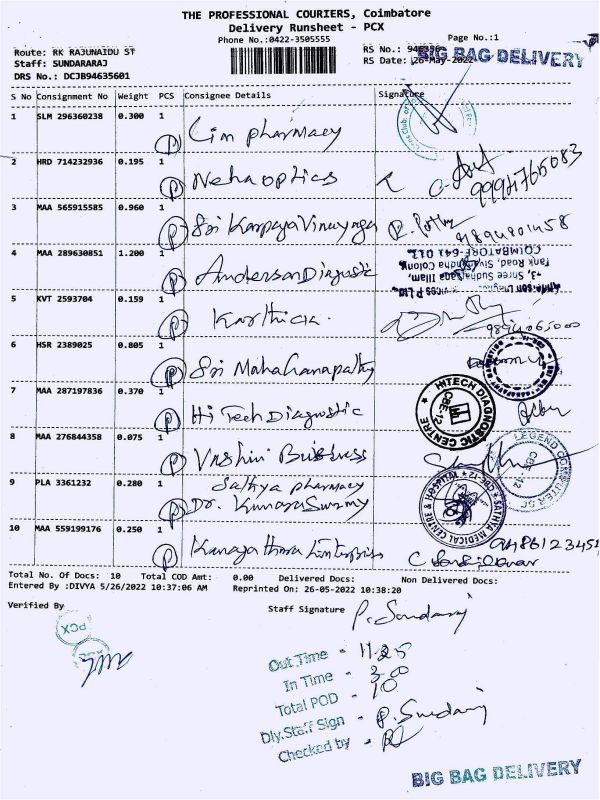 THE PROFESSIONAL COURIERS, Coimbatore
Delivery Runsheet - PCX
Phone No.:0422-3505555
Page No.:1
Route: RK RAJUNAIDU ST
RS No.:
BIG BAG DELIVERY
Staff: SUNDARARAJ
RS Date: 26-May-2022
DRS No.: DCJB94635601
S No Consignment No Weight PCS Consignee Details Signature
1 SLM 296360238 0.300 1 P Lim pharmacy
2 HRD 714232936 0.195 1 P Neha optics
3 MAA 565915585 0.960 1 P Sri Karpaga Vinayaga
4 MAA 289630851 1.200 1 P Anderson Diagnostic
COIMBATORE-641 012.
5 KVT 2593704 0.159 1 P Karthick.
6 HSR 2389025 0.805 1 P Sri Mahaganapathy
7 MAA 287197836 0.370 1 P Hi Tech Diagnostic
HITECH DIAGNOSTIC CENTRE CBE-12
8 MAA 276844358 0.075 1 P Business
LEGEND COMPUTER
9 PLA 3361232 0.280 1 P Sathya pharmacy
Dr. Kumaraswamy
SATHYA MEDICAL CENTRE & HOSPITAL CBE-12
10 MAA 559199176 0.250 1 P Kanagathara Enterprises
9486123451
Total No. Of Docs: 10 Total COD Amt: 0.00 Delivered Docs: Non Delivered Docs:
Entered By :DIVYA 5/26/2022 10:37:06 AM Reprinted On: 26-05-2022 10:38:20
Verified By
Staff Signature P. Sundaraj
PCX
Out Time - 11.25
In Time - 3.00
Total POD - 10
Dly.Staff Sign - P. Sundaraj
Checked by -
BIG BAG DELIVERY